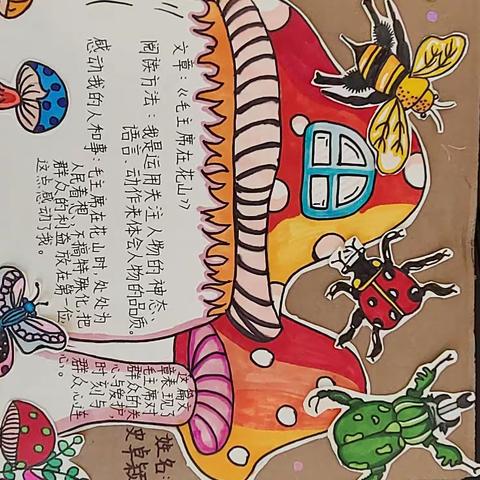 文章：《毛主席在花山》
阅读方法：我是运用关注人物的神态、
语言、动作来体会人物的品质。
感动我的人和事：毛主席在花山时，处处为
人民着想，不搞特殊化，把
群众的利益放在第一位，
这点感动了我。
这篇文
章表现了
毛主席对
群众的关
心与爱护，
时刻与
群众心连
心。
姓名：
史卓颖